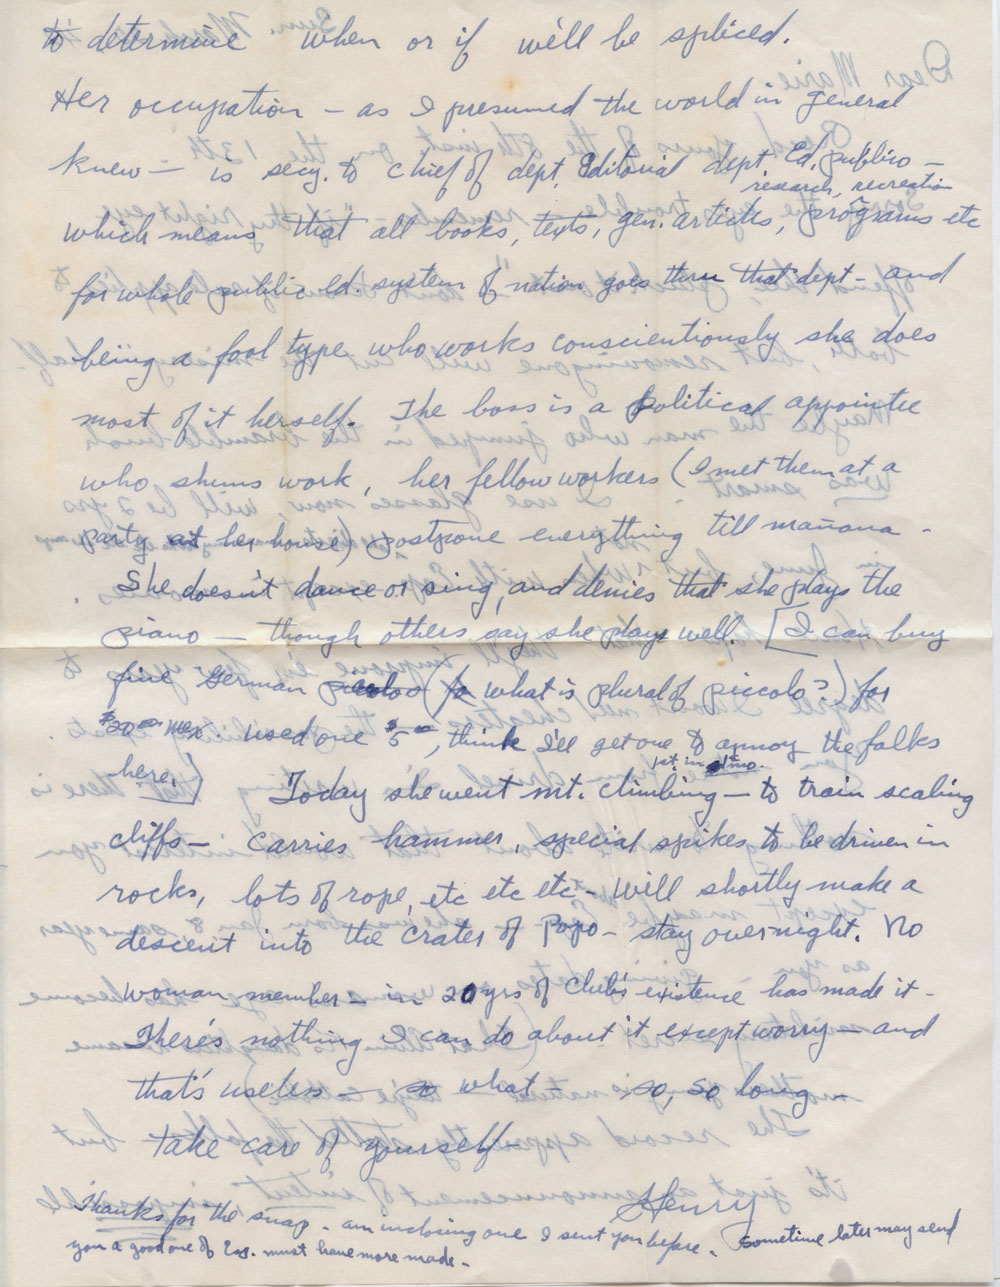 to determine when or if we'll be spliced.
Her occupation – as I presumed the world in general
knew – is secy. to chief of dept, Editorial dept, Ed, publico –
research, recreation
which means that all books, texts, gen. articles, programs etc
for whole public ed. system of nation goes thru that dept – and
being a fool type who works conscientiously she does
most of it herself. The boss is a political appointee
who shuns work, her fellow workers (I met them at a
party at her house) postpone everything till mañana –
She doesn't dance or sing, and denies that she plays the
piano – though others say she plays well. [I can buy
fine German (what is plural of piccolo?) for
$20.00 mex. used one $5.00, think I'll get one to annoy the folks
here.] Today she went mt. climbing – to train scaling
1st. in mo.
cliffs – carries hammer, special spikes to be driven in
rocks, lots of rope, etc etc etc – Will shortly make a
descent into the crater of Popo – stay overnight. No
woman member – in 20 yrs of club's existence has made it –
There's nothing I can do about it except worry – and
that's useless – so what – so, so long –
take care of yourself –
Henry
Thanks for the snap – am inclosing one I sent you before – Sometime later may send
you a good one of Eas. must have more made –